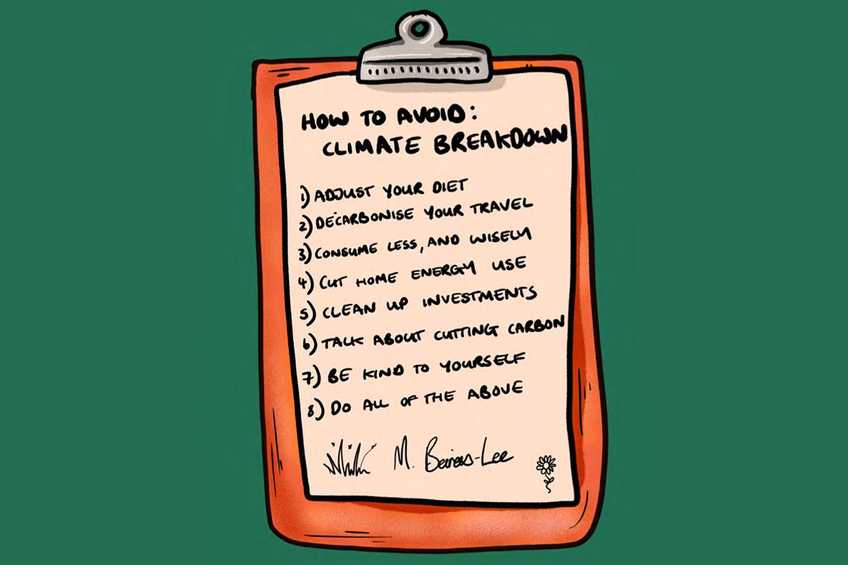 HOW TO AVOID:
CLIMATE BREAKDOWN
1) ADJUST YOUR DIET
2) DECARBONISE YOUR TRAVEL
3) CONSUME LESS, AND WISELY
4) CUT HOME ENERGY USE
5) CLEAN UP INVESTMENTS
6) TALK ABOUT CUTTING CARBON
7) BE KIND TO YOURSELF
8) DO ALL OF THE ABOVE
M. Berners-Lee